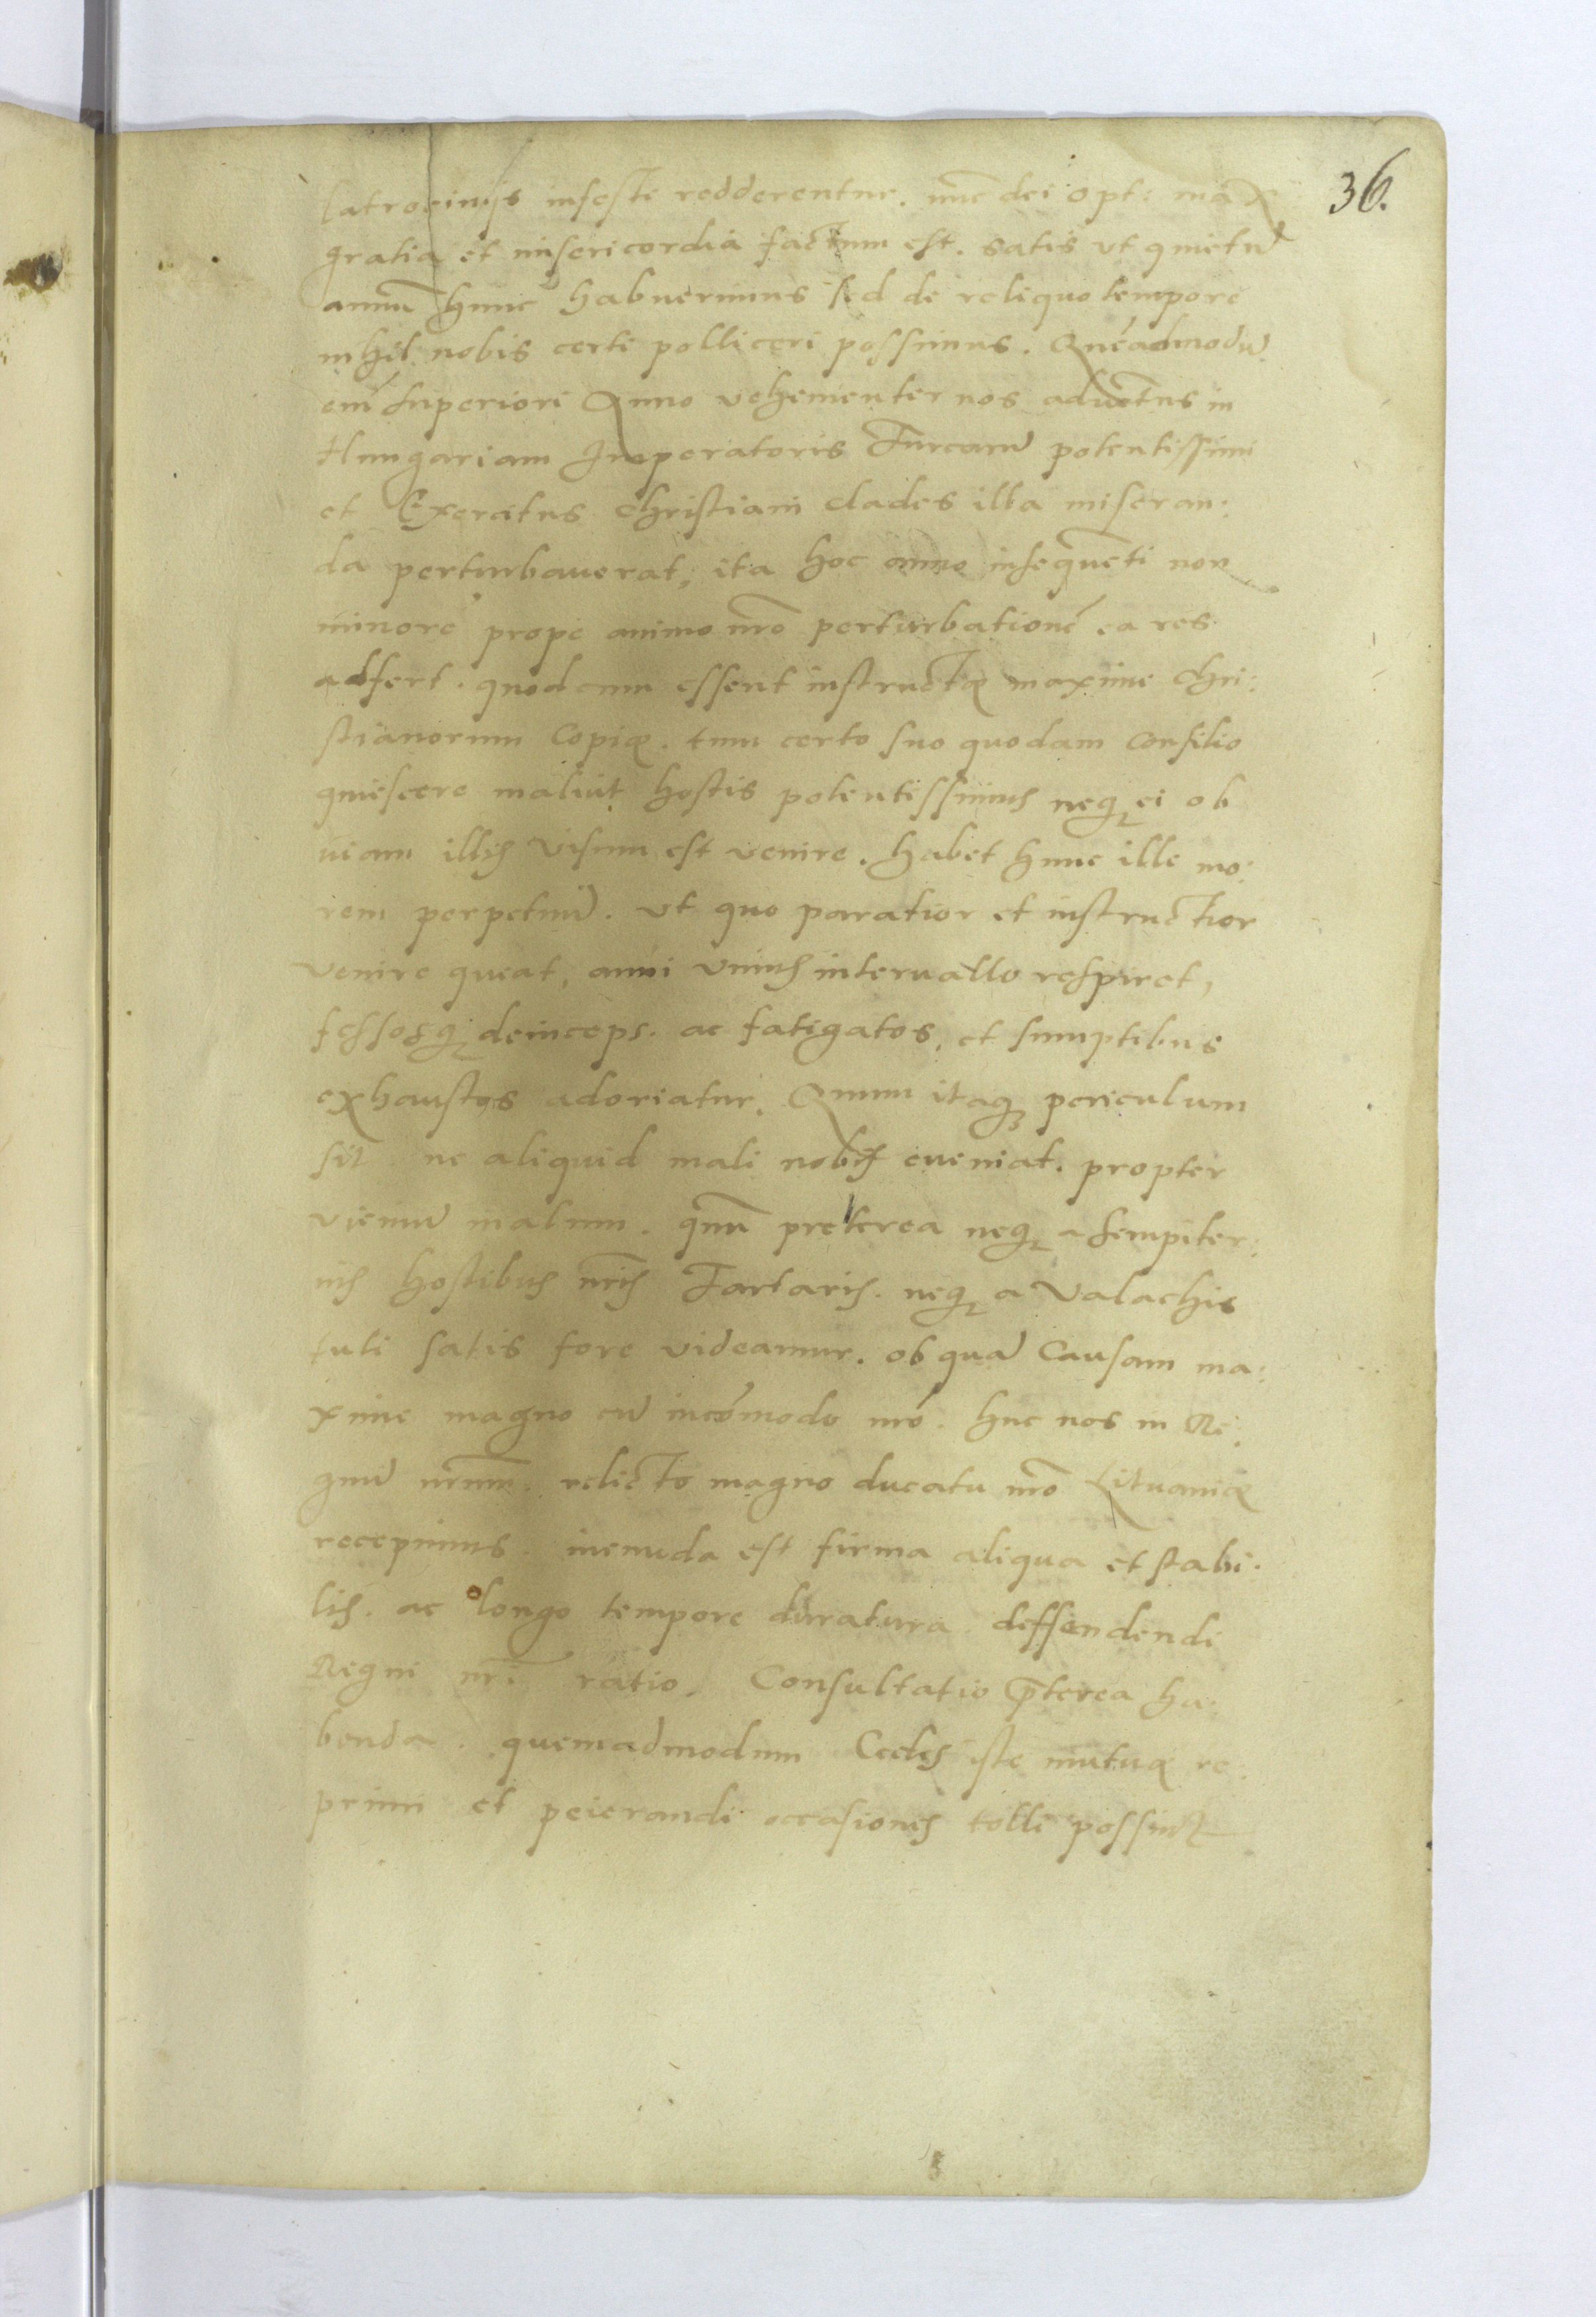 36.
latrocinijs infesti redderentur. nūc dei opt: max
gratia et misericordia factum est. satis vt quietū
annū hunc habuerimus sed de reliquo tempore
nihil nobis certi polliceri possimus. Quēadmodū
eni superiori Anno vehementer nos aduētus in
Hungariam Imperatoris Turcarū potentissimi
et Exercitus christiani clades illa miseran:
da perturbauerat, ita hoc anno insequēti non
minorē prope animo nr̄o perturbationē ea res
adfert. quod cum essent instructæ maxime chri:
stianorum Copiæ. tum certo suo quodam consilio
quiescere maluit hostis potentissimus neq₃ ei ob
uiam illis visum est venire. habet hunc ille mo:
rem perpetuū. vt quo paratior et instructior
venire queat, anni vnius interuallo respiret,
fessosq₃ deinceps. ac fatigatos, et sumptibus
exhaustos adoriatur. Quum itaq₃ periculum
sit ne aliquid mali nobis eueniat. propter
vicinū malum. quū preterea neq₃ a sempiter:
nis hostibus nr̄is Tartaris. neq₃ a Valachis
tuti satis fore videamur. ob quā Causam ma:
xime magno cū incōmodo nr̄o. huc nos in Re:
gnū nr̄um. relicto magno ducatu nr̄o Lituaniæ
recepimus. ineunda est firma aliqua et stabi:
lis. ac longo tempore duratura deffendendi
Regni nr̄i ratio. Consultatio p̄terea ha:
benda. quemadmodum Cedes iste mutuæ re:
primi et peierandi occasiones tolli possint